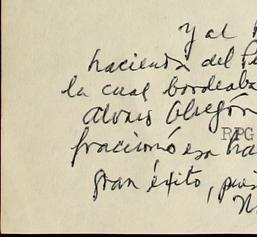 y al
hacienda del
la cual bordeaba
Alvaro Obregón
RPG
fraccionó esa ha
gran éxito, pues